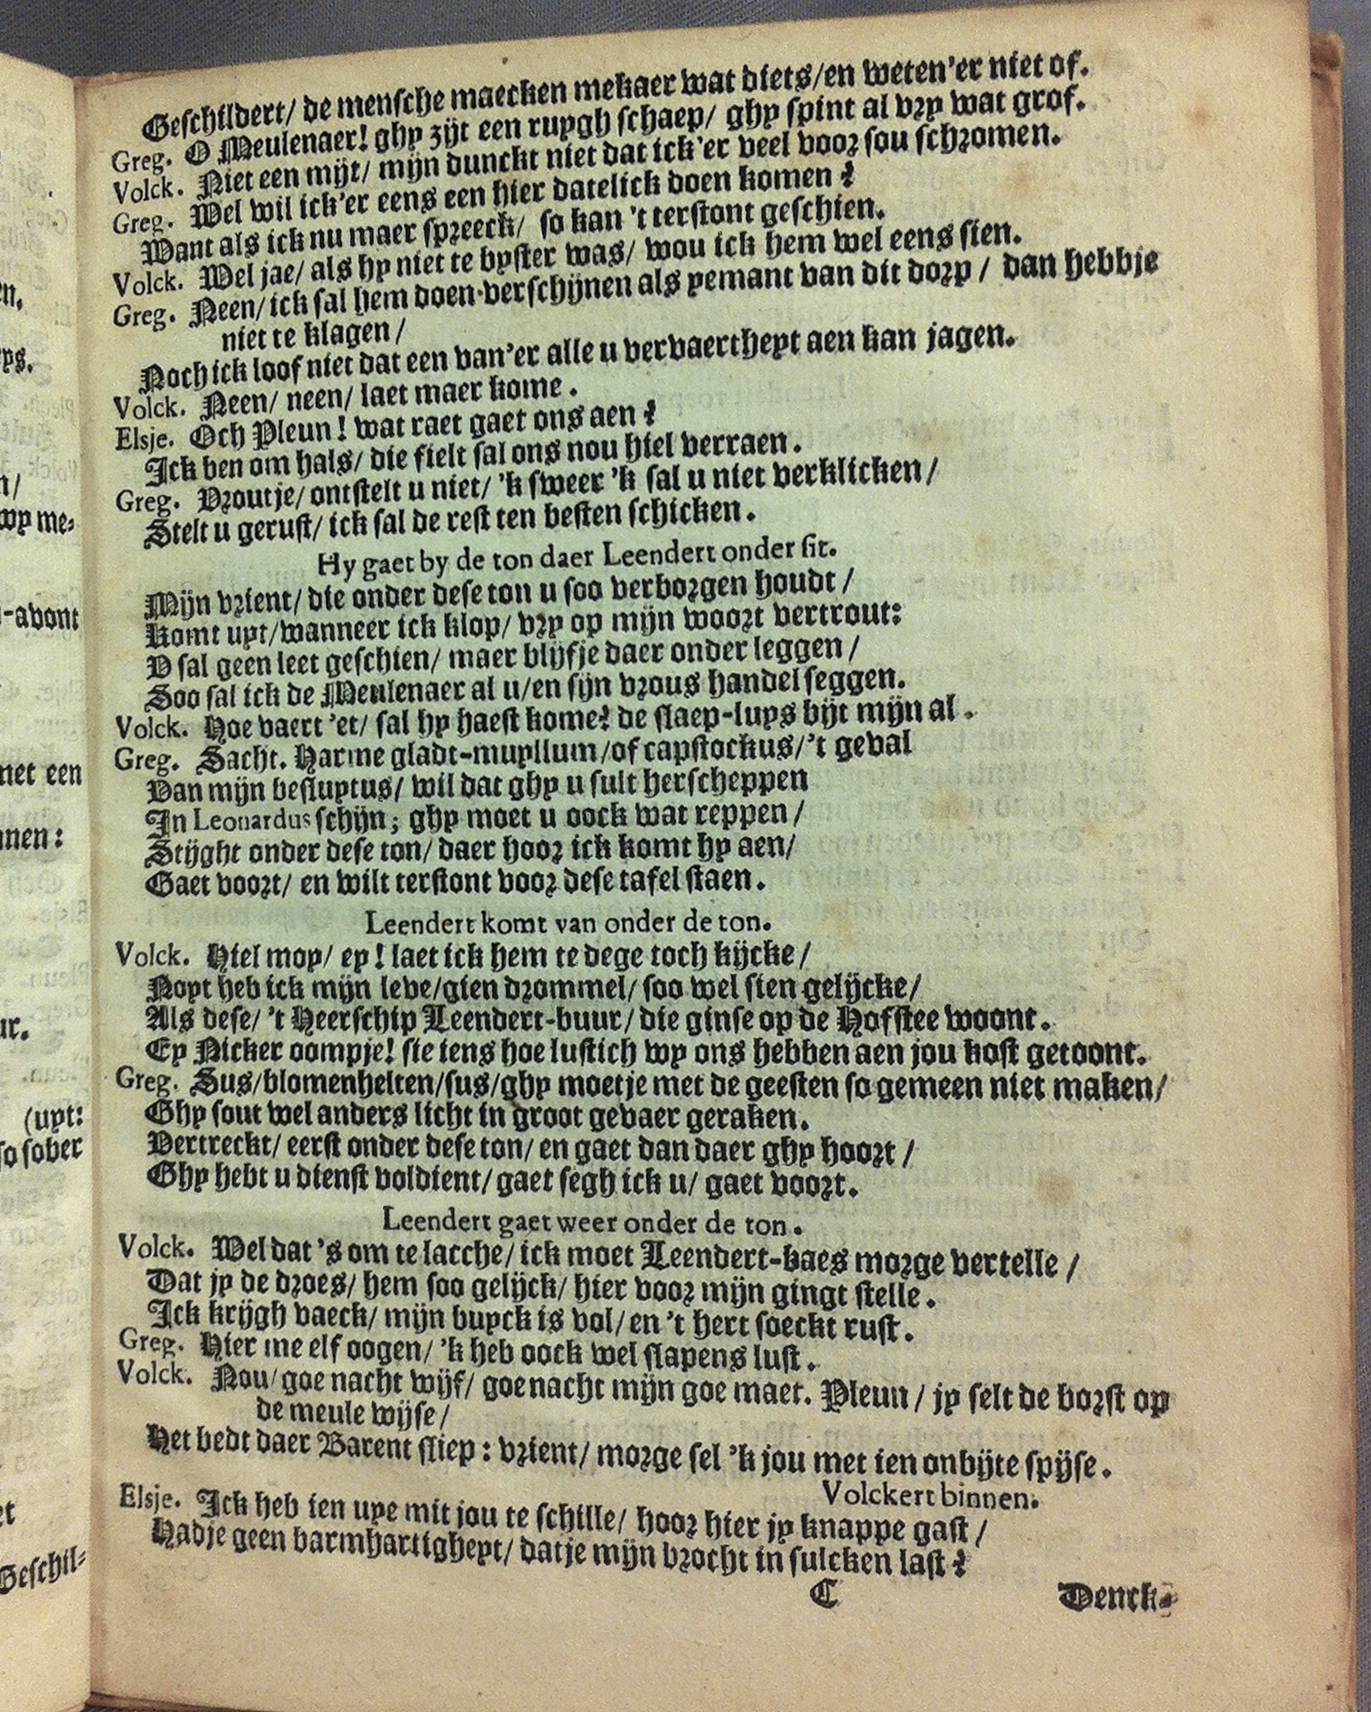 Geschildert/ de mensche maecken mekaer wat diets/en weten'er niet of.
Greg. O Meulenaer! ghy zijt een ruygh schaep/ ghy spint al vry wat grof.
Volck. Niet een mijt/ mijn dunckt niet dat ick'er veel voor sou schromen.
Greg. Wel wil ick'er eens een hier datelick doen komen?
Want als ick nu maer spreeck/ so kan 't terstont geschien.
Volck. Wel jae/ als hy niet te byster was/ wou ick hem wel eens sien.
Greg. Neen/ick sal hem doen verschijnen als yemant van dit dorp/ dan hebbje
niet te klagen/
Noch ick loof niet dat een van'er alle u vervaertheyt aen kan jagen.
Volck. Neen/ neen/ laet maer kome.
Elsje. Och Pleun! wat raet gaet ons aen?
Ick ben om hals/ die fielt sal ons nou hiel verraen.
Greg. Vroutje/ ontstelt u niet/ 'k sweer 'k sal u niet verklicken/
Stelt u gerust/ ick sal de rest ten besten schicken.
Hy gaet by de ton daer Leendert onder sit.
Mijn vrient/ die onder dese ton u soo verborgen houdt/
Komt uyt/wanneer ick klop/ vry op mijn woort vertrout:
V sal geen leet geschien/ maer blijfje daer onder leggen/
Soo sal ick de Meulenaer al u/en sijn vrous handel seggen.
Volck. Hoe vaert 'et/ sal hy haest kome? de slaep-luys bijt mijn al.
Greg. Sacht. Harme gladt-muyllum/of capstockus/'t geval
Van mijn besluytus/ wil dat ghy u sult herscheppen
In Leonardus schijn; ghy moet u oock wat reppen/
Stijght onder dese ton/ daer hoor ick komt hy aen/
Gaet voort/ en wilt terstont voor dese tafel staen.
Leendert komt van onder de ton.
Volck. Hiel moy/ ey! laet ick hem te dege toch kijcke/
Noyt heb ick mijn leve/gien drommel/ soo wel sien gelijcke/
Als dese/ 't Heerschip Leendert-buur/ die ginse op de Hofstee woont.
Ey Nicker oompje! sie iens hoe lustich wy ons hebben aen jou kost getoont.
Greg. Sus/blomenhelten/sus/ghy moetje met de geesten so gemeen niet maken/
Ghy sout wel anders licht in groot gevaer geraken.
Vertreckt/ eerst onder dese ton/ en gaet dan daer ghy hoort/
Ghy hebt u dienst voldient/ gaet segh ick u/ gaet voort.
Leendert gaet weer onder de ton.
Volck. Wel dat 's om te lacche/ ick moet Leendert-baes morge vertelle/
Dat jy de droes/ hem soo gelijck/ hier voor mijn gingt stelle.
Ick krijgh vaeck/ mijn buyck is vol/ en 't hert soeckt rust.
Greg. Hier me elf oogen/ 'k heb oock wel slapens lust.
Volck. Nou/ goe nacht wijf/ goe nacht mijn goe maet. Pleun/ jy selt de borst op
de meule wijse/
Het bedt daer Barent sliep: vrient/ morge sel 'k jou met ien onbijte spijse.
Volckert binnen.
Elsje. Ick heb ien uye mit jou te schille/ hoor hier jy knappe gast/
Hadje geen barmhartigheyt/ datje mijn brocht in sulcken last?
C
Denck-
en,
yps.
n/
wy me-
-avont
met een
nnen:
ur.
(uyt:
so sober
et
Geschil-